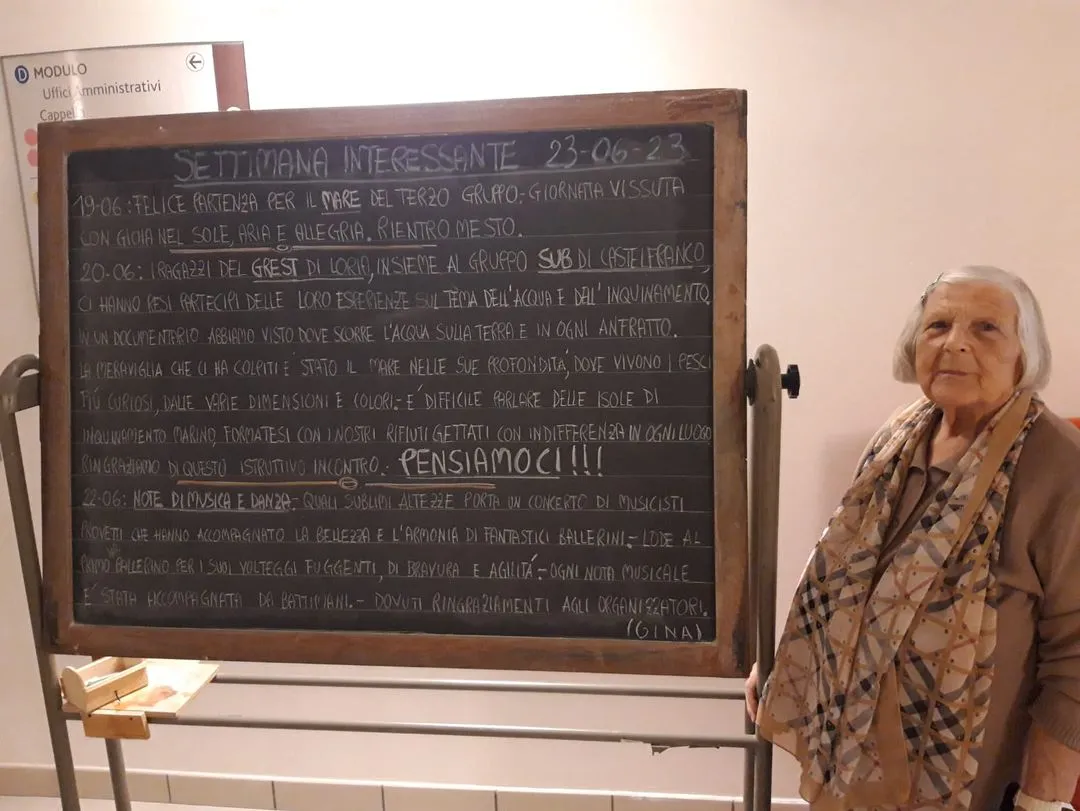 D MODULO
Uffici Amministrativi
Cappell
SETTIMANA INTERESSANTE 23-06-23
19-06: FELICE PARTENZA PER IL MARE DEL TERZO GRUPPO,- GIORNATA VISSUTA
CON GIOIA NEL SOLE, ARIA E ALLEGRIA. RIENTRO MESTO.
20-06: I RAGAZZI DEL GREST DI LORIA, INSIEME AL GRUPPO SUB DI CASTELFRANCO,
CI HANNO RESI PARTECIPI DELLE LORO ESPERIENZE SUL TEMA DELL'ACQUA E DELL'INQUINAMENTO,
IN UN DOCUMENTARIO ABBIAMO VISTO DOVE SCORRE L'ACQUA SULLA TERRA E IN OGNI ANFRATTO.
LA MERAVIGLIA CHE CI HA COLPITI E' STATO IL MARE NELLE SUE PROFONDITA', DOVE VIVONO I PESCI
PIÙ CURIOSI, DALLE VARIE DIMENSIONI E COLORI.- E' DIFFICILE PARLARE DELLE ISOLE DI
INQUINAMENTO MARINO, FORMATESI CON I NOSTRI RIFIUTI GETTATI CON INDIFFERENZA IN OGNI LUOGO
RINGRAZIAMO DI QUESTO ISTRUTTIVO INCONTRO.- PENSIAMOCI!!!
22-06: NOTE DI MUSICA E DANZA- QUALI SUBLIMI ALTEZZE PORTA UN CONCERTO DI MUSICISTI
PROVETI CHE HANNO ACCOMPAGNATO LA BELLEZZA E L'ARMONIA DI FANTASTICI BALLERINI.- LODE AL
PRIMO BALLERINO PER I SUOI VOLTEGGI FUGGENTI, DI BRAVURA E AGILITÁ.- OGNI NOTA MUSICALE
E' STATA ACCOMPAGNATA DA BATTIMANI.- DOVUTI RINGRAZIAMENTI AGLI ORGANIZZATORI.
(GINA)